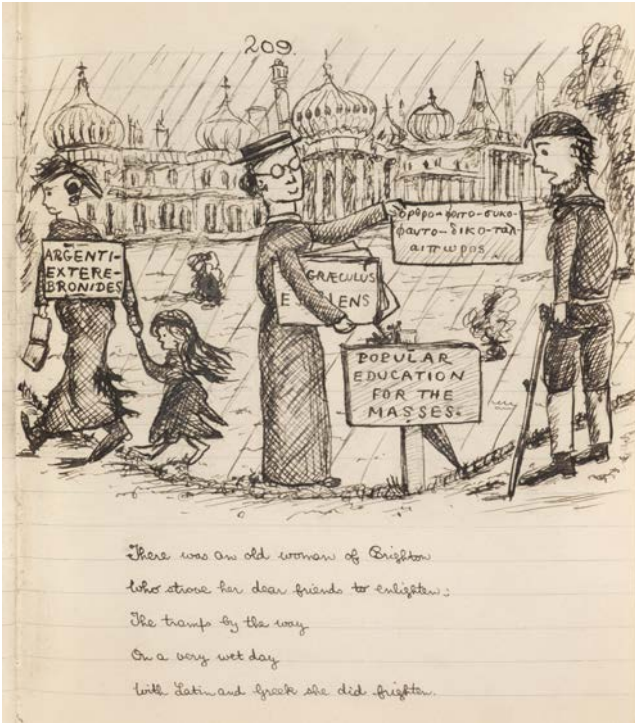 209.
ARGENTI-
EXTERE-
BRONIDES
ορθρο-φοιτο-συκο-
φαντο-δικο-ταλ-
αιπωρος.
GRÆCULUS
POPULAR
EDUCATION
FOR THE
MASSES.
There was an old woman of Brighton
Who strove her dear friends to enlighten:
The tramps by the way
On a very wet day
With Latin and Greek she did frighten.